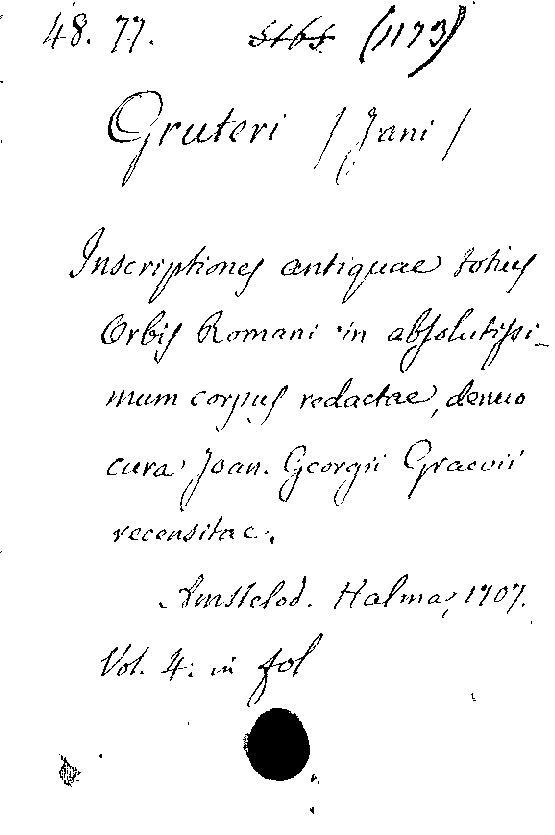 48. 77. (1173)
Gruteri / Jani /
Inscriptiones antiquae totius
Orbis Romani in absolutissi-
mum corpus redactae, denuo
cura Joan. Georgii Graevii
recensitae.
Amstelod. Halma, 1707.
Vol. 4. in fol